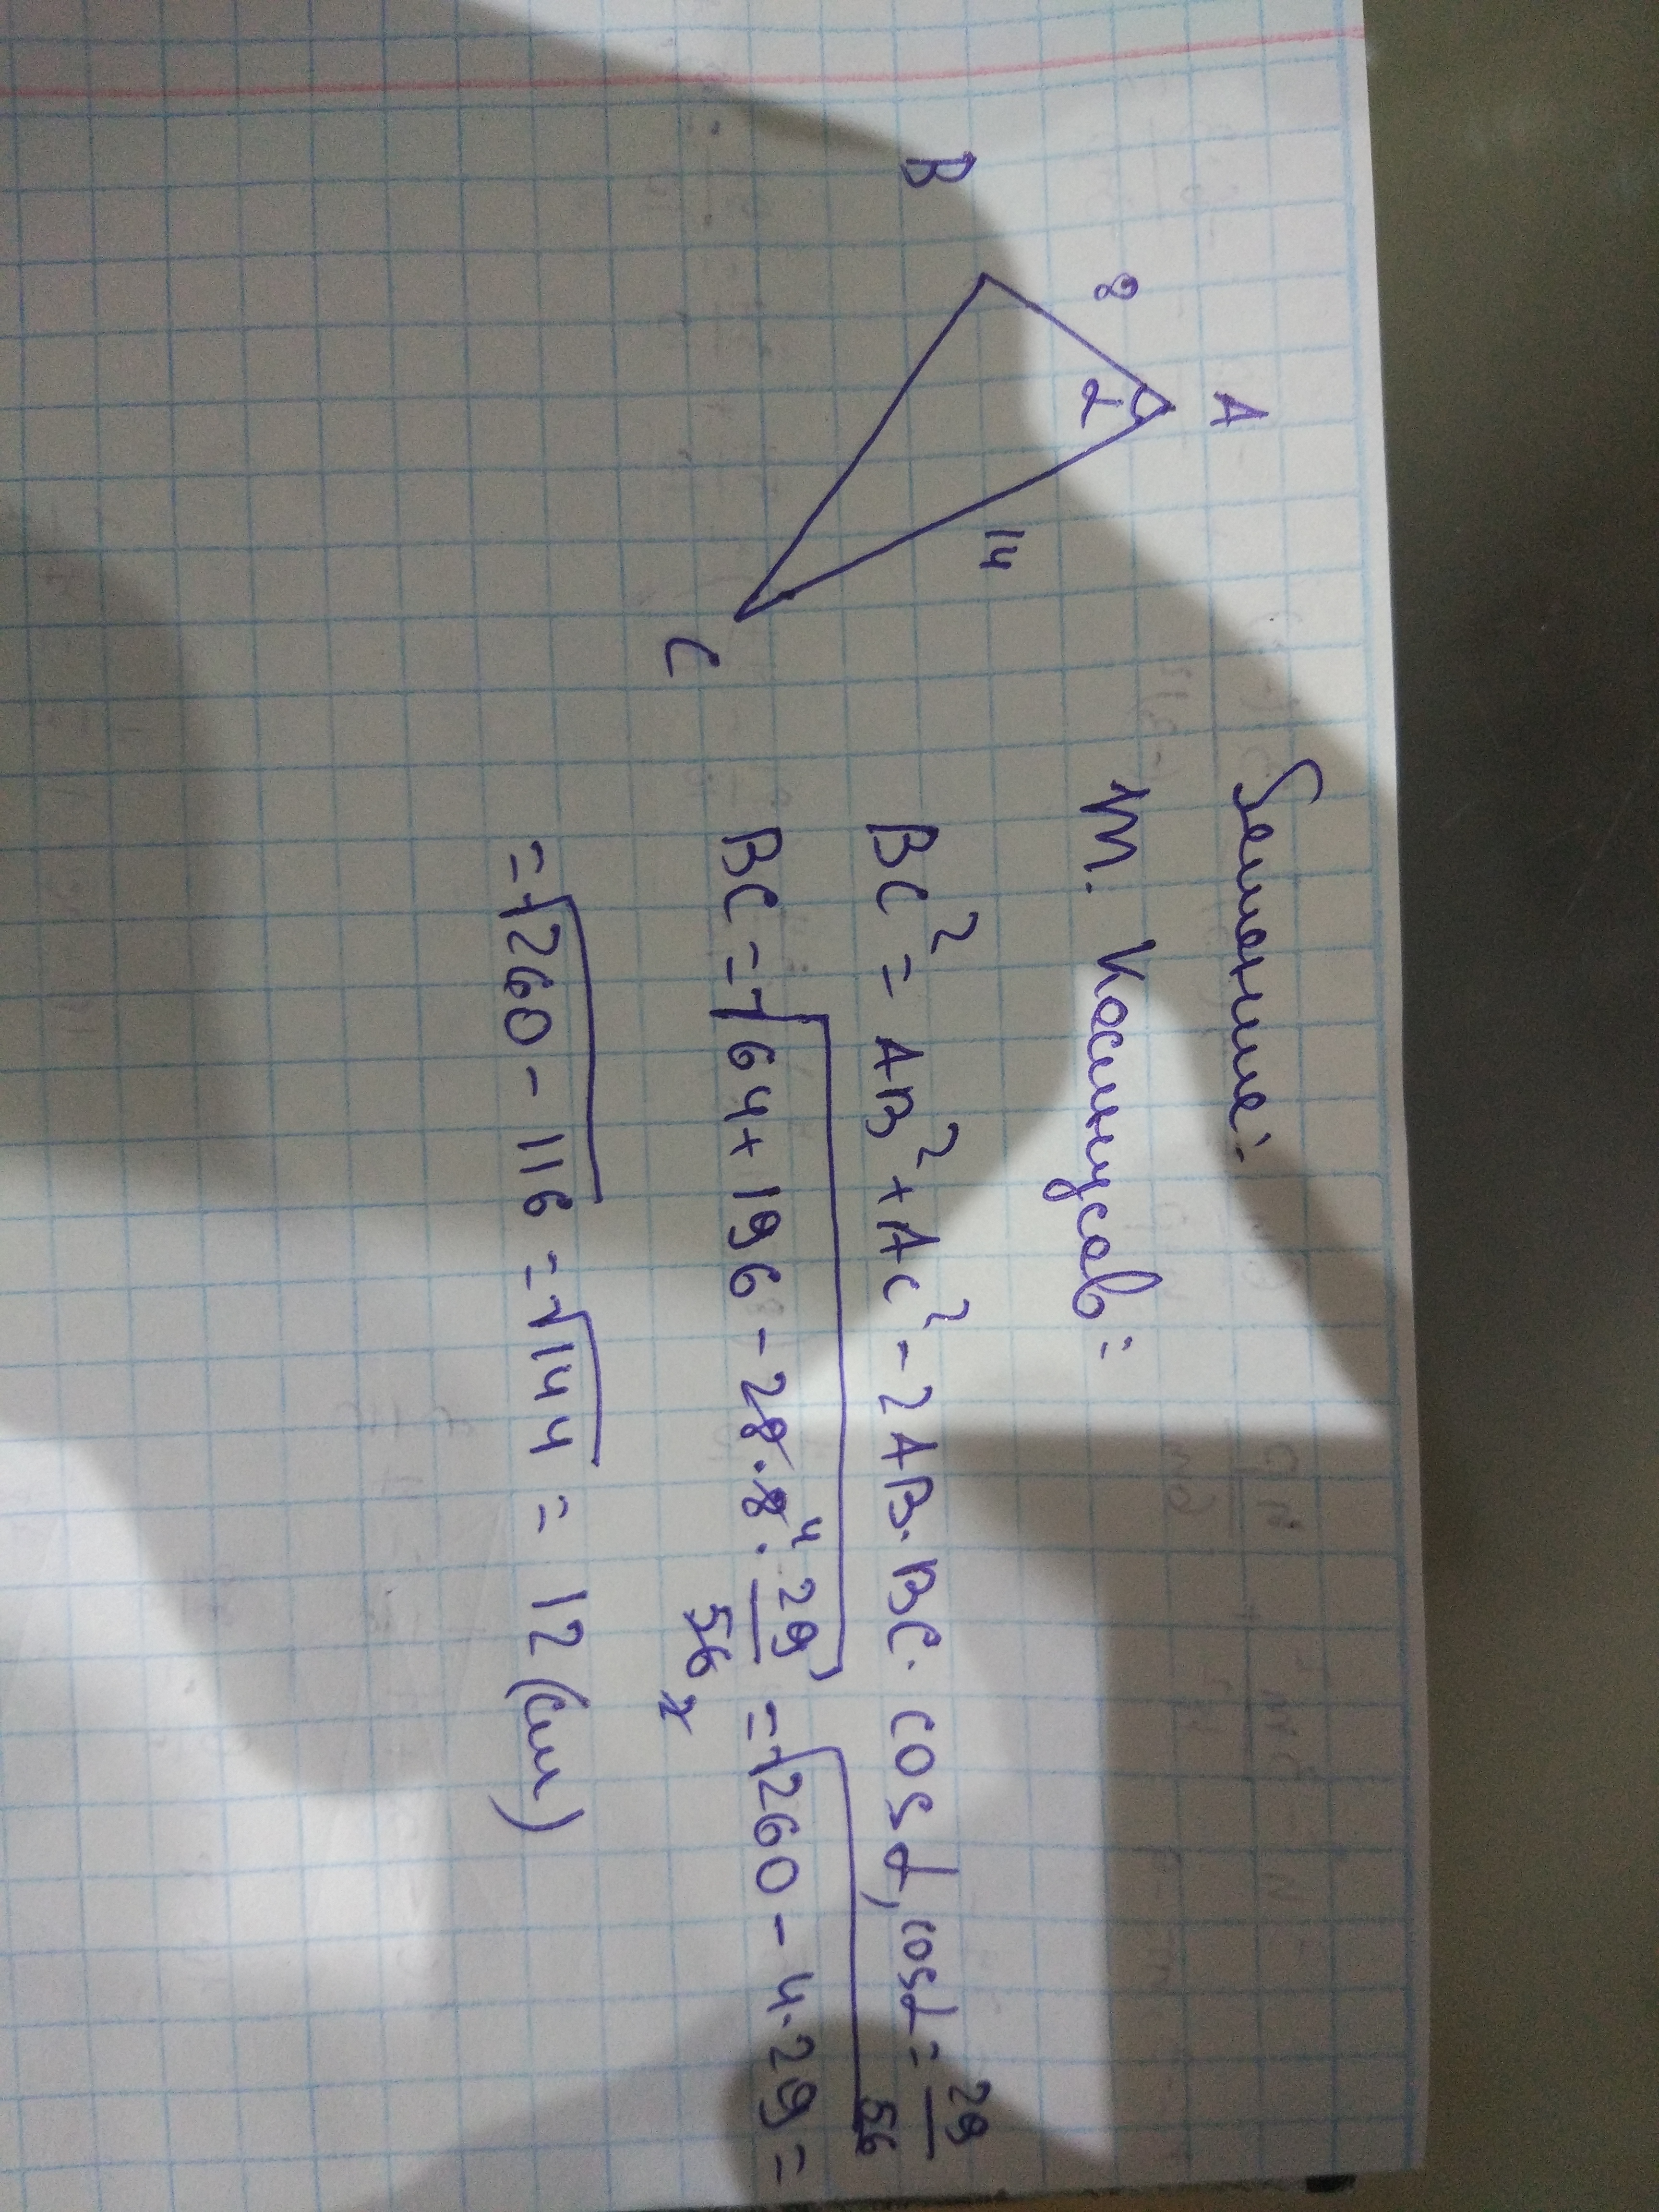 A
8
α
14
B
C
Решение:
т. Косинусов:
BC² = AB² + AC² - 2AB·BC·cosα, cosα = 29/56
BC = √64+196-28·8⁴·29/56₂ = √260-4·29 =
= √260-116 = √144 = 12(см)